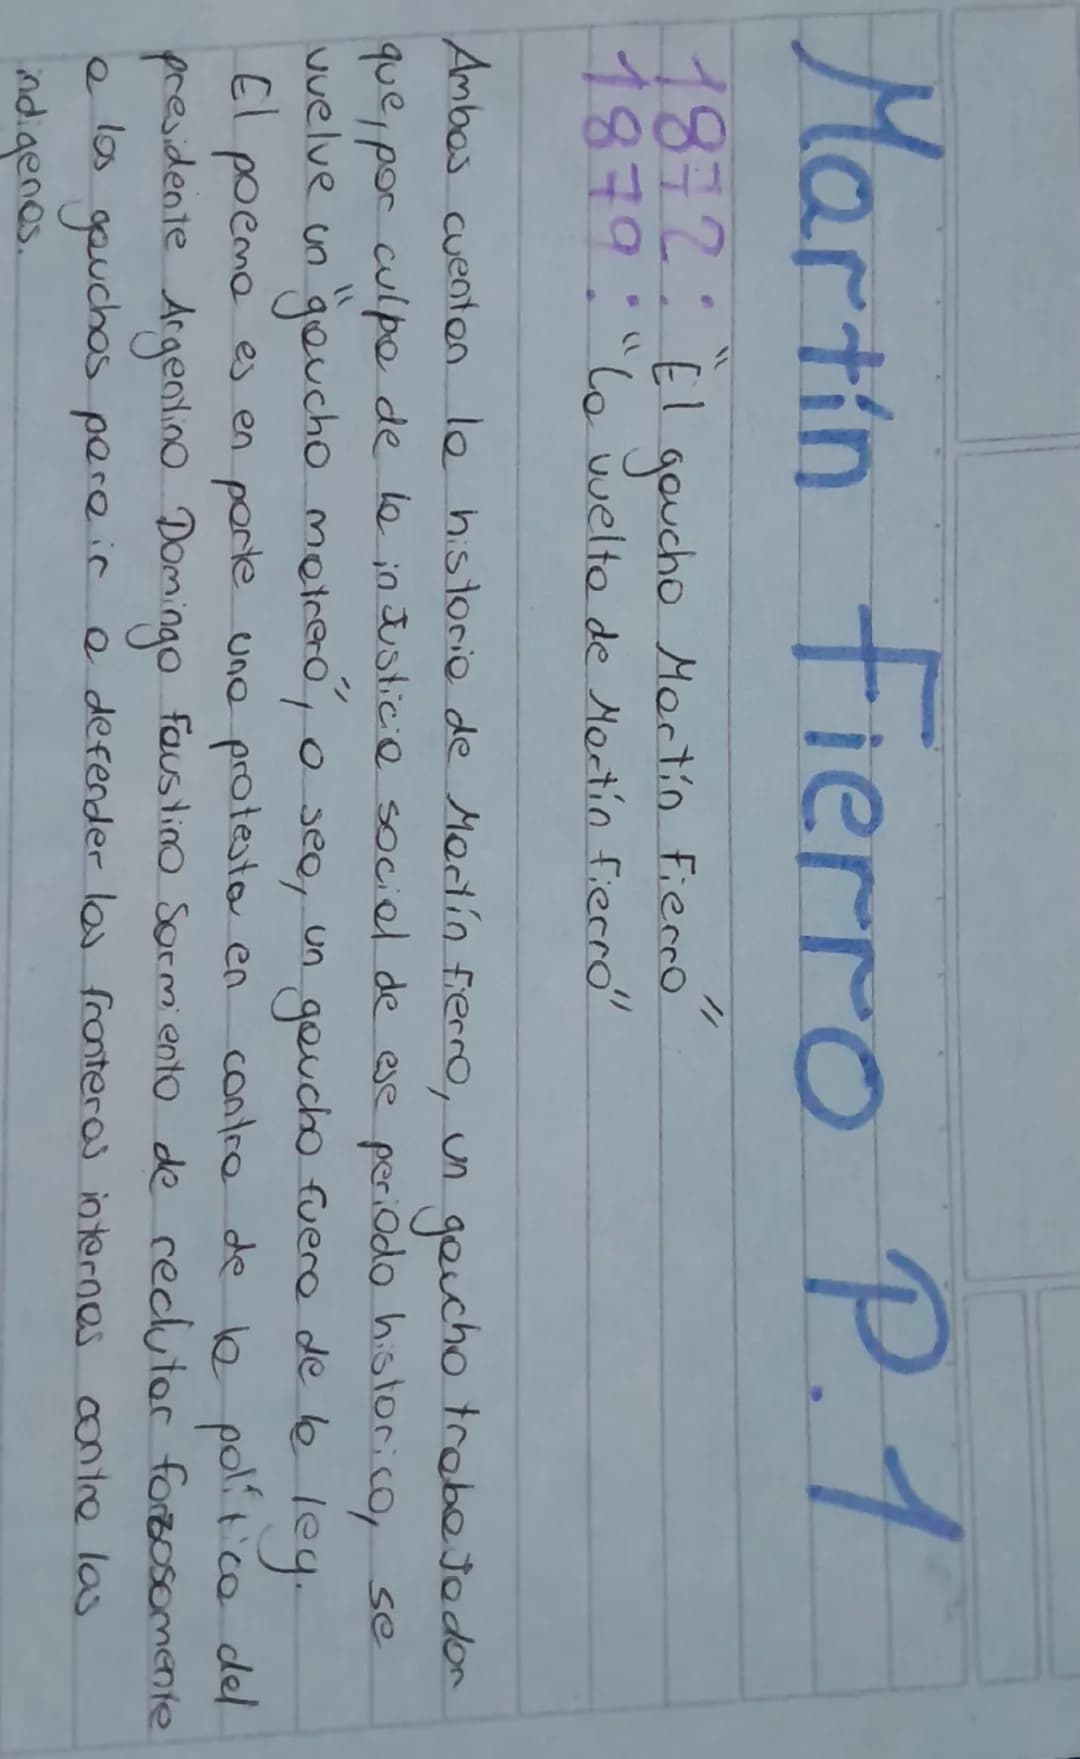 Martín Fierro P.1
1872: "El gaucho Martín Fierro"
1879: "La vuelta de Martín Fierro"
Ambas cuentan la historia de Martín Fierro, un gaucho trabajador
que, por culpa de la injusticia social de ese periodo historico, se
vuelve un "gaucho matrero", o sea, un gaucho fuera de la ley.
El poema es en parte una protesta en contra de la política del
presidente Argentino Domingo Faustino Sarmiento de reclutar forzosamente
a los gauchos para ir a defender las fronteras internas contra los
indigenas.